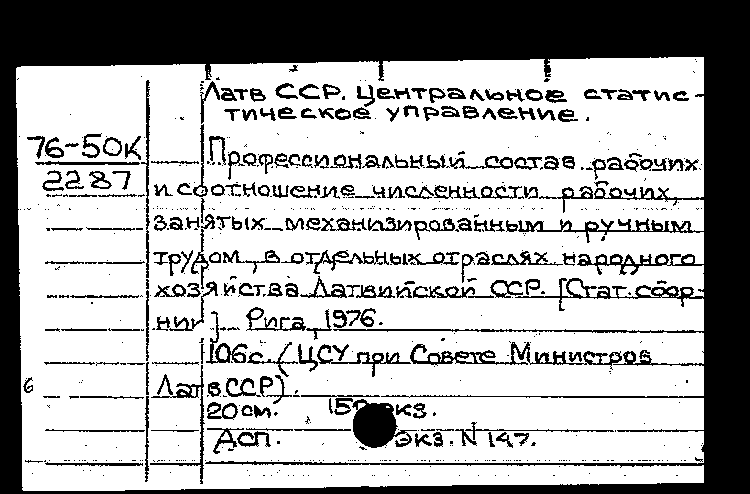 Латв ССР. Центральное статис-
тическое управление.
76-50К
2287
Профессиональный состав рабочих
и соотношение численности рабочих,
занятых механизированным и ручным
трудом, в отдельных отраслях народного
хозяйства Латвийской ССР. [Стат. сбор-
ник]. Рига, 1976.
106с. (ЦСУ при Совете Министров
Латв ССР).
6
20 см. экз.
ДСП. Экз. N 147.